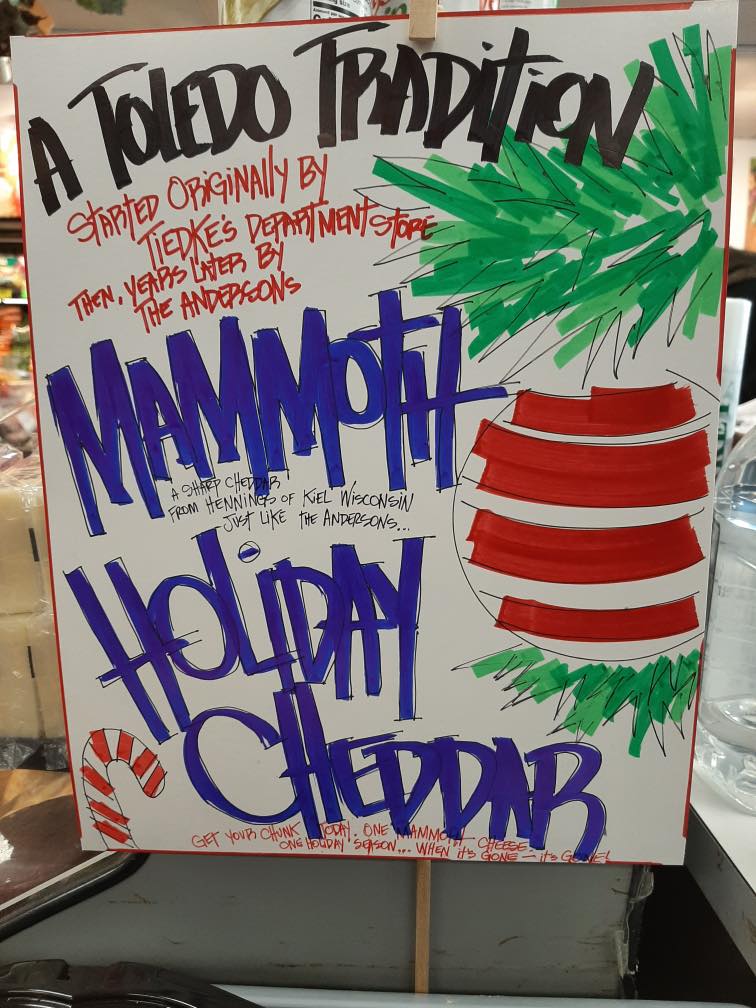 A TOLEDO TRADITION
STARTED ORIGINALLY BY
TIEDKE'S DEPARTMENT STORE
THEN, YEARS LATER BY
THE ANDERSONS
MAMMOTH
A SHARP CHEDDAR
FROM HENNINGS OF KIEL WISCONSIN
JUST LIKE THE ANDERSONS...
HOLIDAY
CHEDDAR
GET YOUR CHUNK TODAY. ONE MAMMOTH CHEESE
ONE HOLIDAY SEASON... WHEN it's GONE — it's GONE!